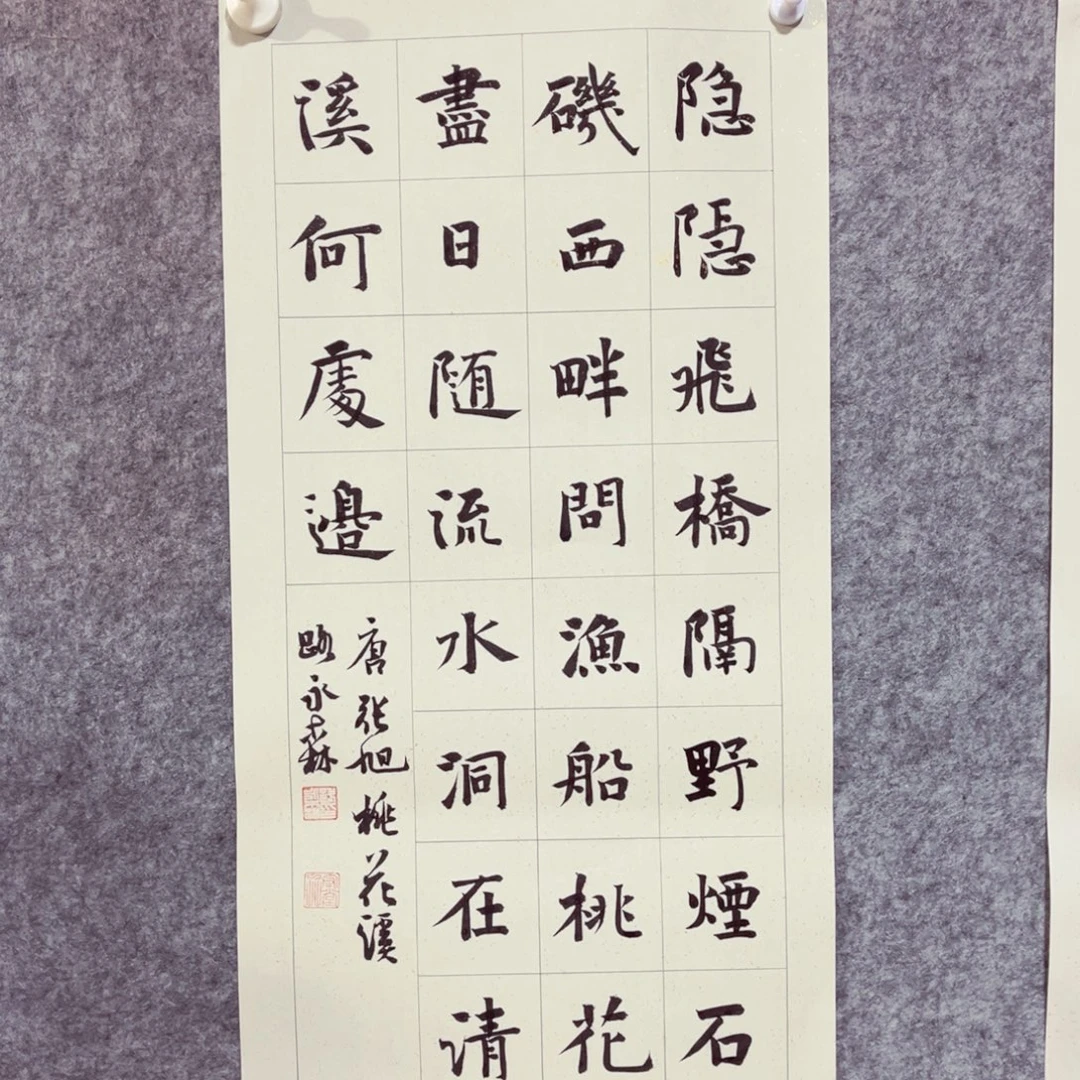 隐隠飛橋隔野煙石
磯西畔問漁船桃花
盡日随流水洞在清
溪何處邊
唐張旭桃花溪
路永森